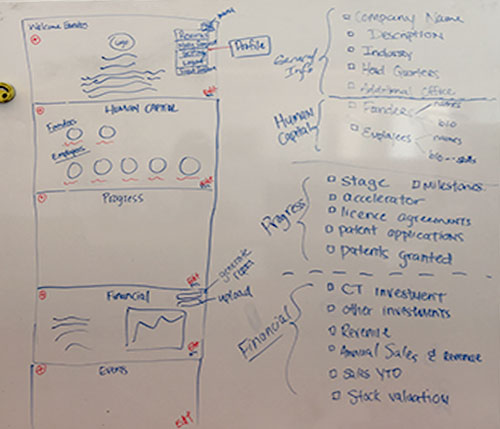 Welcome
Logo
Profile
Edit
HUMAN CAPITAL
Founders
Employees
Edit
Progress
Edit
Financial
generate
upload
Edit
Events
Edit
General Info
Company Name
Description
Industry
Head Quarters
Additional Office
Human Capital
Founders
names
bio
Employees
names
bio -- skills
Progress
Stage
Milestones
accelerator
licence agreements
patent applications
patents granted
Financial
CT Investment
other investments
Revenue
Annual Sales & revenue
Sales YTD
Stock valuation